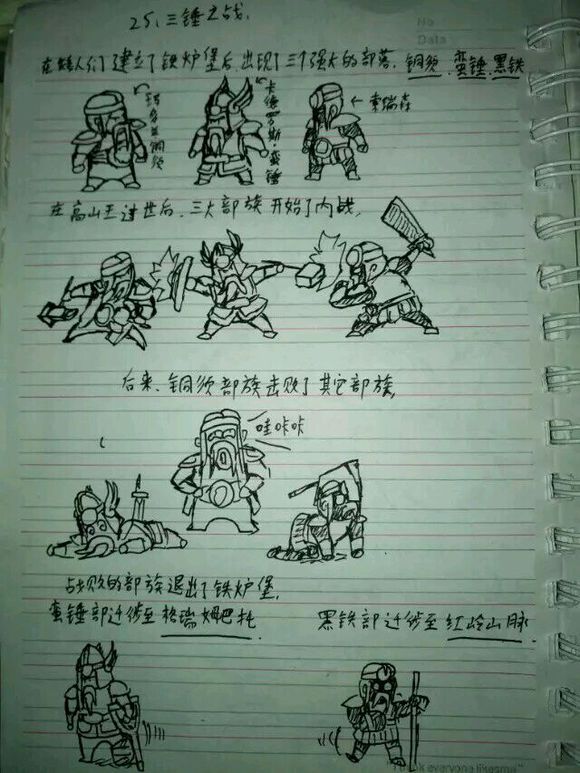 25、三锤之战.
No
Date
在矮人们建立了铁炉堡后出现了三个强大的部落.铜须.蛮锤.黑铁
铜须
卡德罗斯·蛮锤
索瑞森
在高山王过世后.三大部族开始了内战.
后来.铜须部族击败了其它部族.
哇咔咔
战败的部族退出了铁炉堡.
蛮锤部迁徙至格瑞姆巴托
黑铁部迁徙至红岭山脉
everyone likes me"